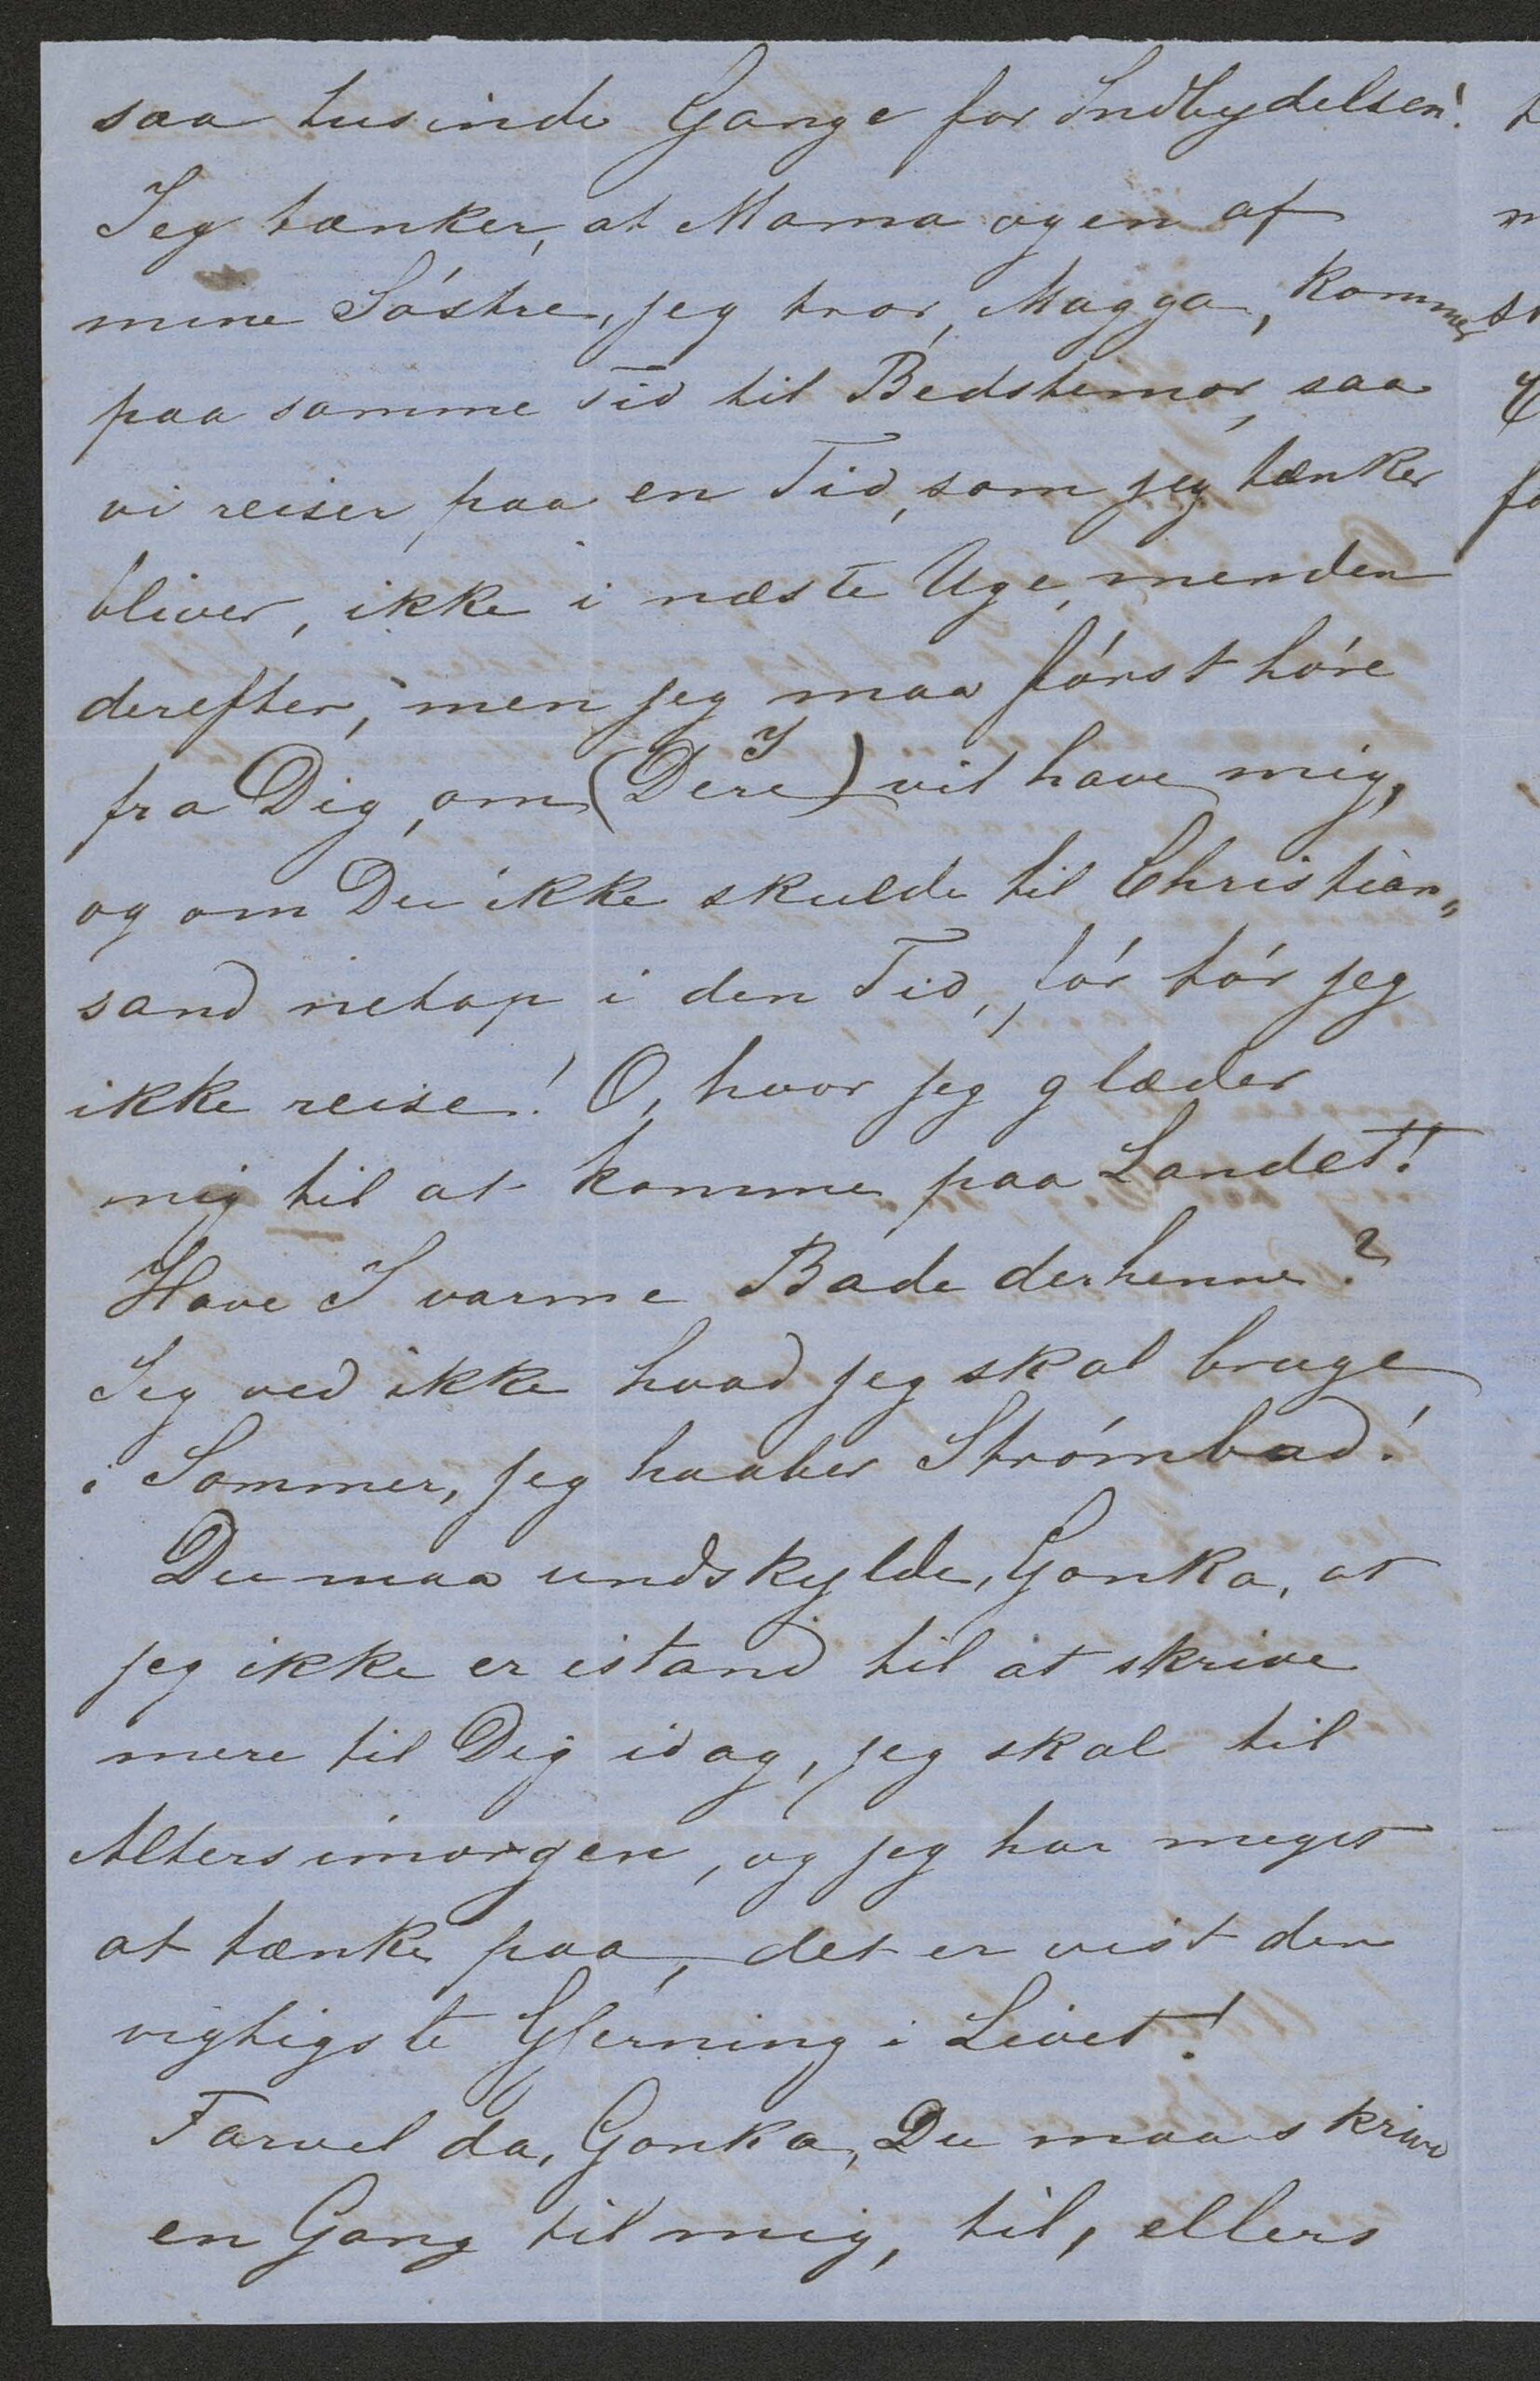 saa tusinde Gange for Indbydelsen!
Jeg tænker, at Mama og en af
mine Søstre, jeg tror, Magga, kommer
paa samme Tid til Bedstemor, saa
vi reiser paa en Tid, som jeg tænker
bliver, ikke i næste Uge, men den
derefter, men jeg maa først høre
fra Dig, om (Dere) I vil have mig,
og om Du ikke skulde til Christian„
sand netop i den Tid, før tør jeg
ikke reise! O, hvor jeg glæder
mig til at komme paa Landet!
Have I varme Bade derhenne?
Jeg ved ikke hvad jeg skal bruge
i Sommer, jeg haaber Strømbad!
Du maa undskylde, Ganka, at
jeg ikke er istand til at skrive
mere til Dig idag, jeg skal til
Alters imorgen, og jeg har meget
at tænke paa, det er vist den
vigtigste Gjerning i Livet!
Farvel da, Ganka, Du maa skrive
en Gang til mig, til, ellers